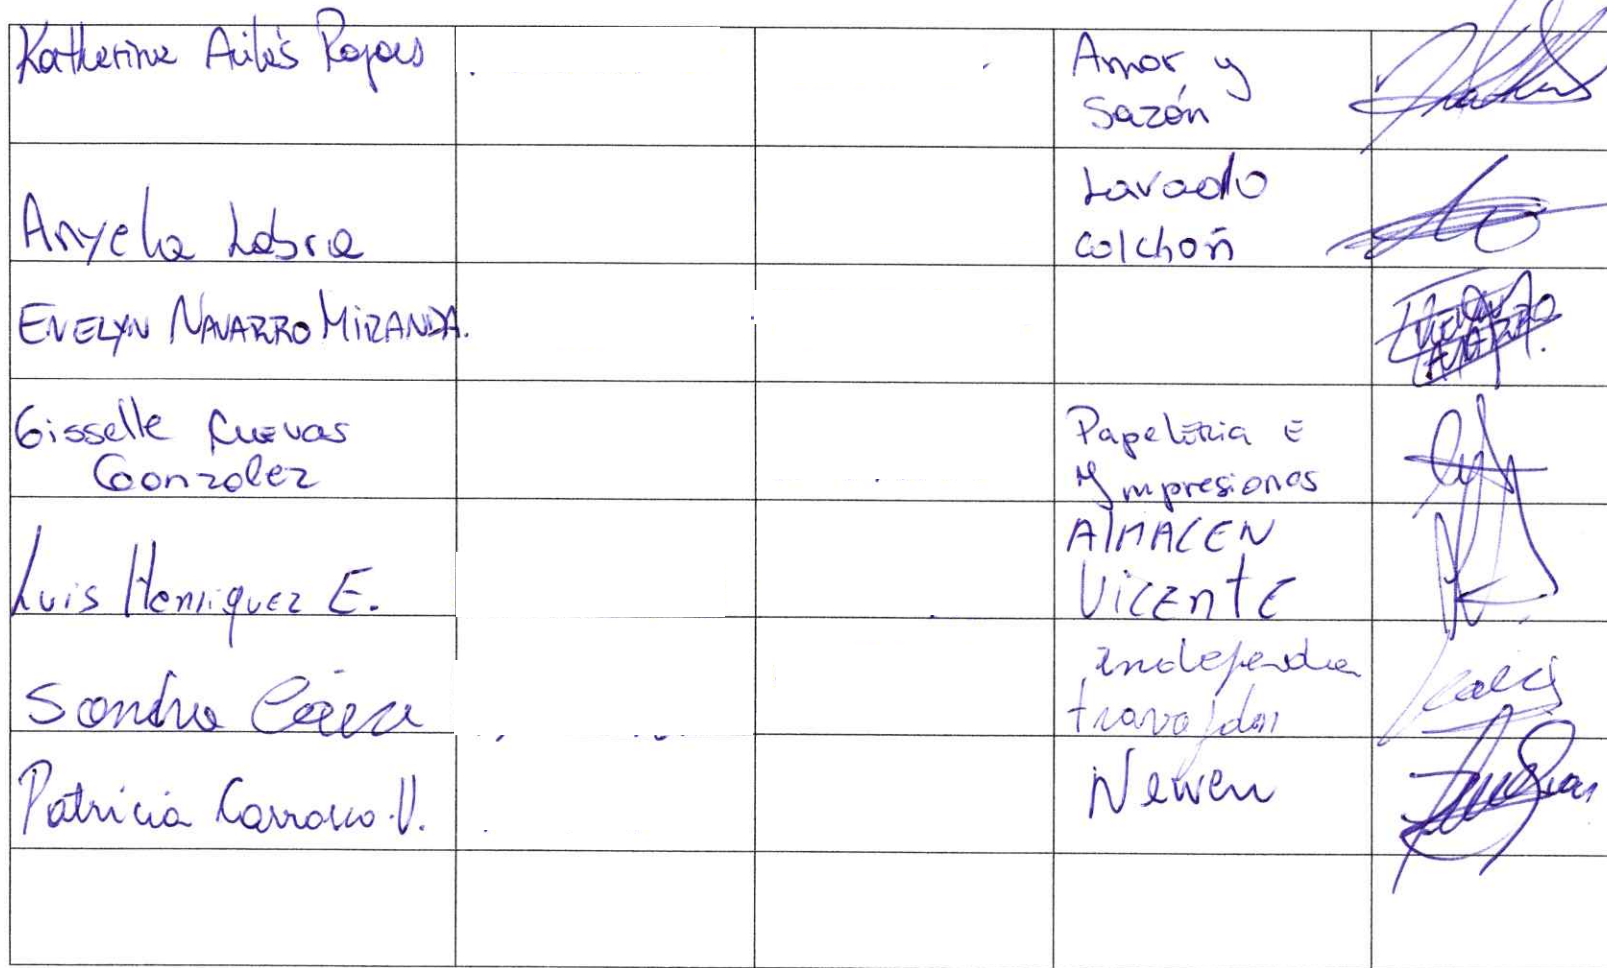 Katherine Avilés Rojas
Amor y
Sazón
Anyela Labra
Lavado
Colchoñ
EVELYN NAVARRO MIRANDA.
Gisselle Cuevas
Gonzalez
Papeleria E
Ympresiones
AlMACEN
VicEntE
Luis Henriquez E.
Sandra
independie
travajdor
Patricia Carrasco V.
Newen